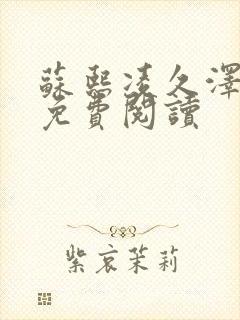 蘇熙凌久澤
免費閱讀
紫哀茉莉